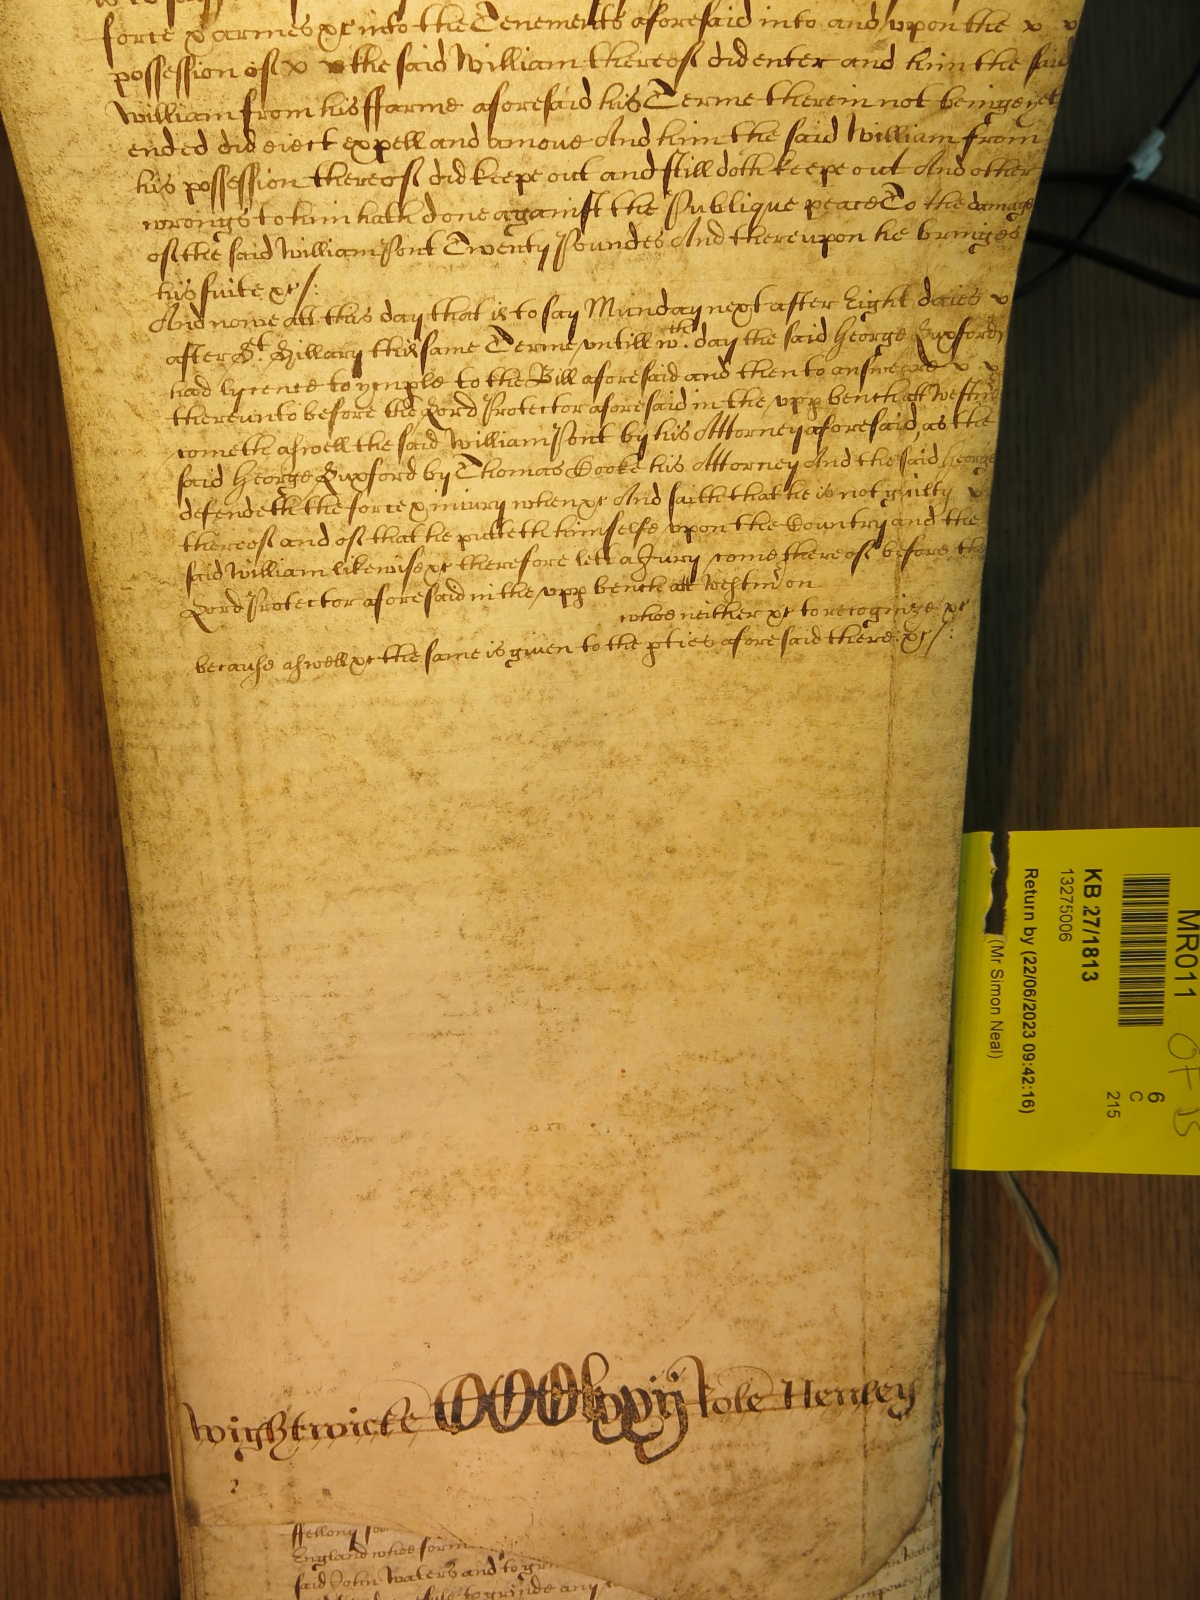 force & armes &c into the Tenements aforesaid into and vpon the x x
possession of x x the said William thereof did enter and him the said
William from his ffarme aforesaid his Terme therein not beinge yet
ended did eiect expell and amove And him the said William from
his possession thereof did keepe out and still doth keepe out And other
wrongs to him hath done against the Publique peace To the damage
of the said William Pont Twenty Poundes And thereupon he bringes
his suite &c/:
And nowe att this day that is to say Munday next after Eight daies x
after St. Hillary this same Terme vntill wch. day the said George Luxford
had lycence to imple to the Bill aforesaid and then to answeare x x
thereunto before the Lord Protector aforesaid in the vpp bench att Westm
cometh aswell the said William Pont by his Attorney aforesaid, as the
said George Luxford by Thomas Cooke his Attorney And the said George
defendeth the force & iniury when &c And saith that he is not guilty x
thereof and of that he putteth himselfe vpon the Country and the
said William likewise &c therefore lett a Jury come thereof before the
Lord Protector aforesaid in the vpp bench att Westm on
whoe neither &c to recognize &c
because aswell &c the same is given to the pties aforesaid there &c/:
Wightwicke CCClxxiij Role Henley
2
ffellony
England whoe form
said John Waters and to grin
to grinde any
MR011
6
C
215
KB 27/1813
13275006
Return by (22/06/2023 09:42:16)
(Mr Simon Neal)